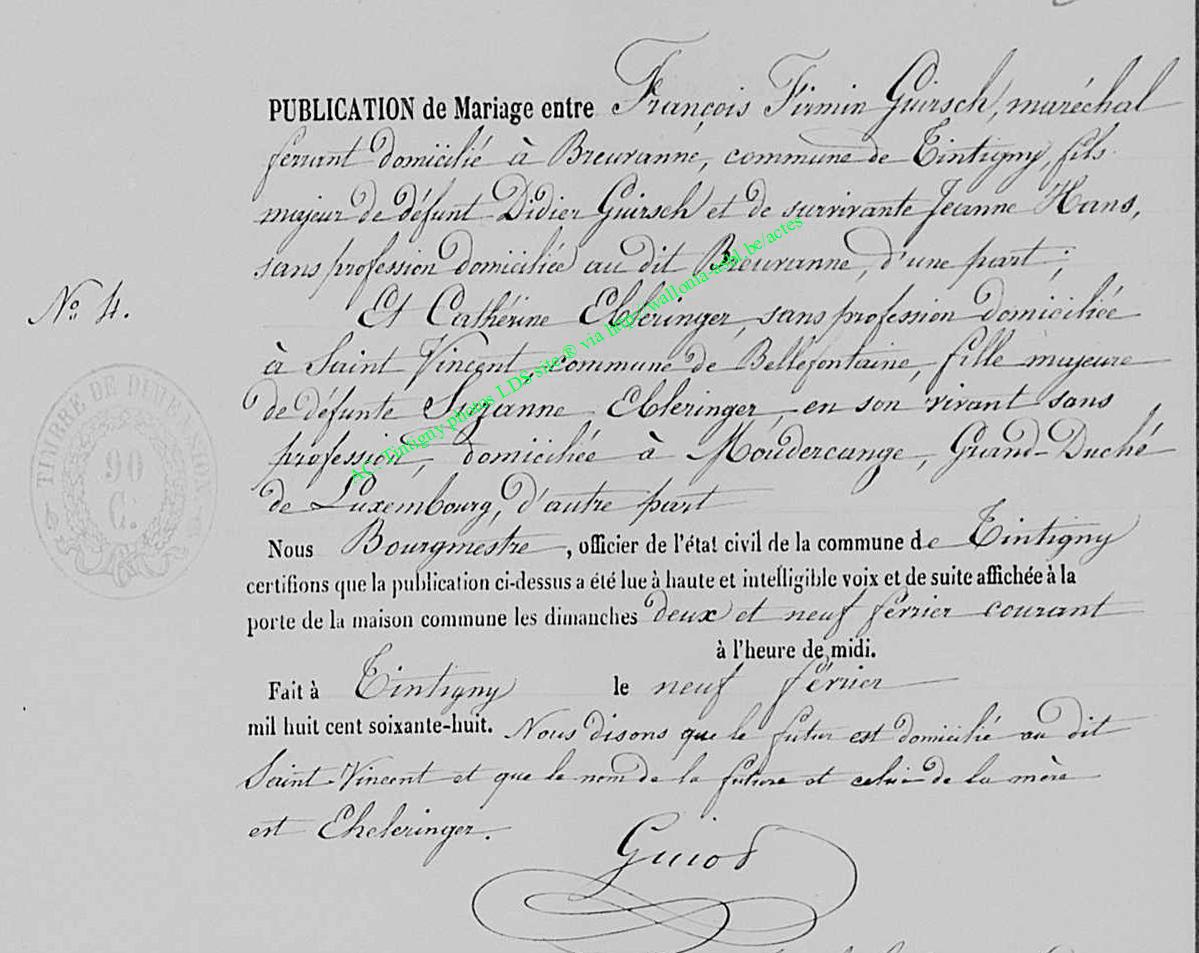 PUBLICATION de Mariage entre François Firmin Guirsch, maréchal
ferrant domicilié à Breuvanne, commune de Tintigny, fils
majeur de défunt Didier Guirsch et de survivante Jeanne Hans,
sans profession domiciliée au dit Breuvanne, d'une part;
Et Cathérine Ebleringer, sans profession domiciliée
No 4.
à Saint Vincent, commune de Bellefontaine, fille majeure
de défunte Suzanne Ebleringer, en son vivant sans
profession, domiciliée à Moudercange, Grand-Duché
de Luxembourg, d'autre part
Nous Bourgmestre, officier de l'état civil de la commune de Tintigny
certifions que la publication ci-dessus a été lue à haute et intelligible voix et de suite affichée à la
porte de la maison commune les dimanches deux et neuf février courant
à l'heure de midi.
Fait à Tintigny le neuf février
mil huit cent soixante-huit. Nous disons que le futur est domicilié au dit
Saint-Vincent et que le nom de la future et celui de la mère
est Eheleringer.
Guiot
TIMBRE DE DIMENSION
90
C.
AC. Tintigny photos LDS site ® via http://wallonia-asbl.be/actes